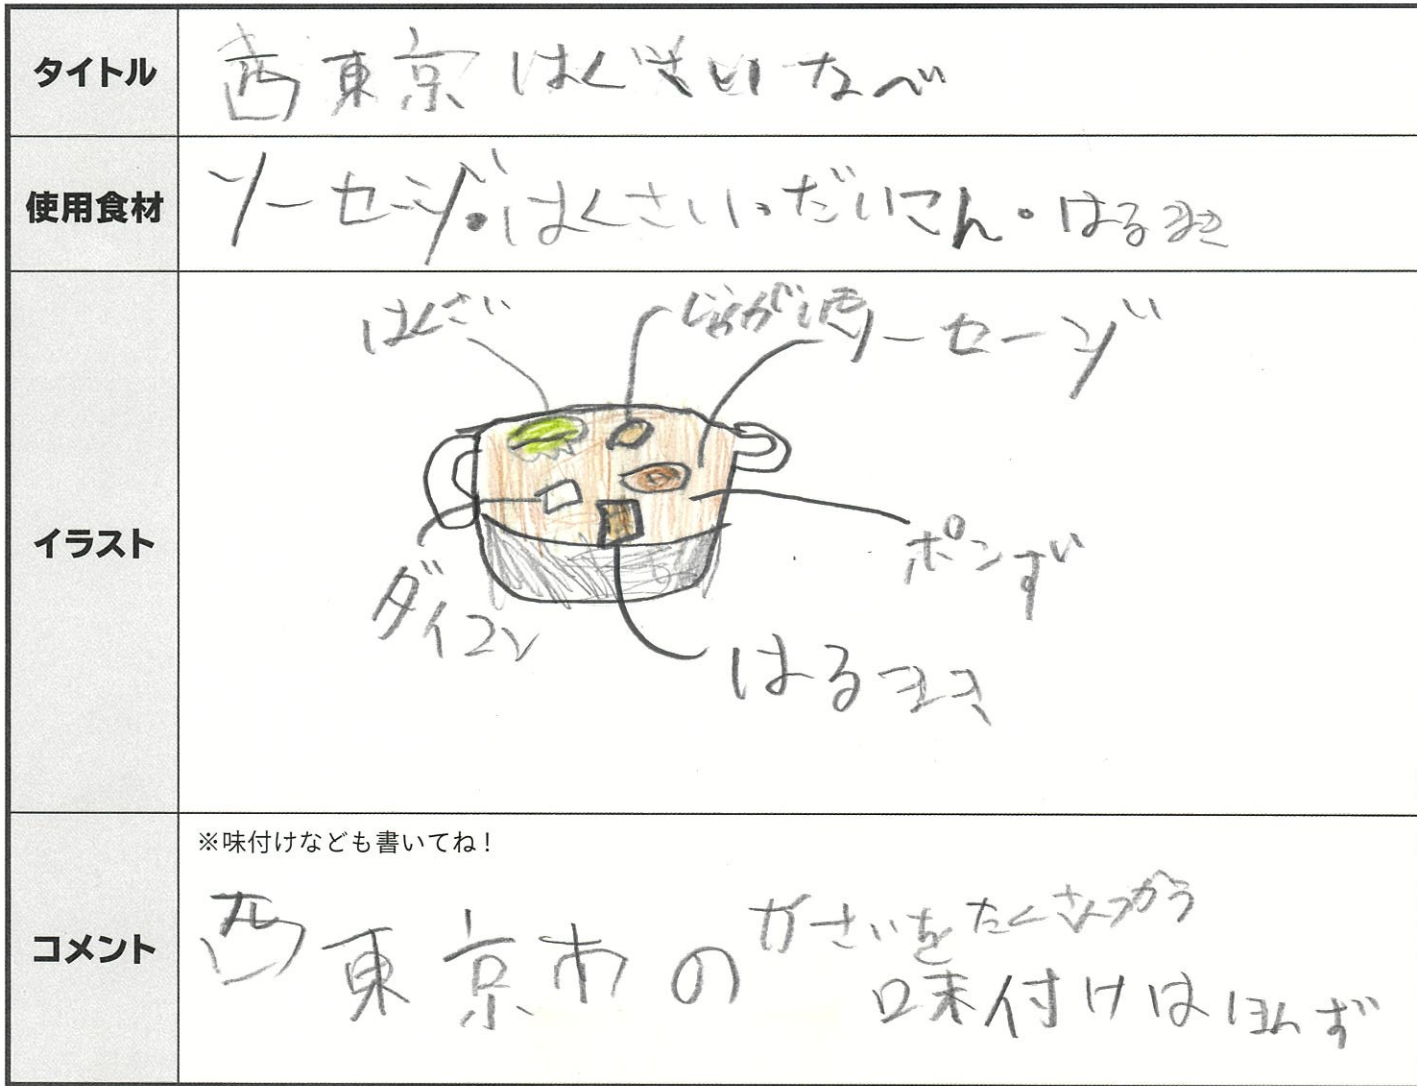 タイトル
西東京はくさいなべ
使用食材
ソーセージ・はくさい・だいこん・はるまき
イラスト
はくさい
じゃがいも
ソーセージ
ダイコン
ポンず
はるまき
コメント
※味付けなども書いてね!
西東京市の
やさいをたくさんつかう
味付けはほんず